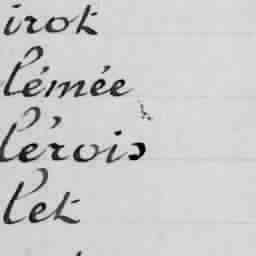 irot
lémée
lérois
let